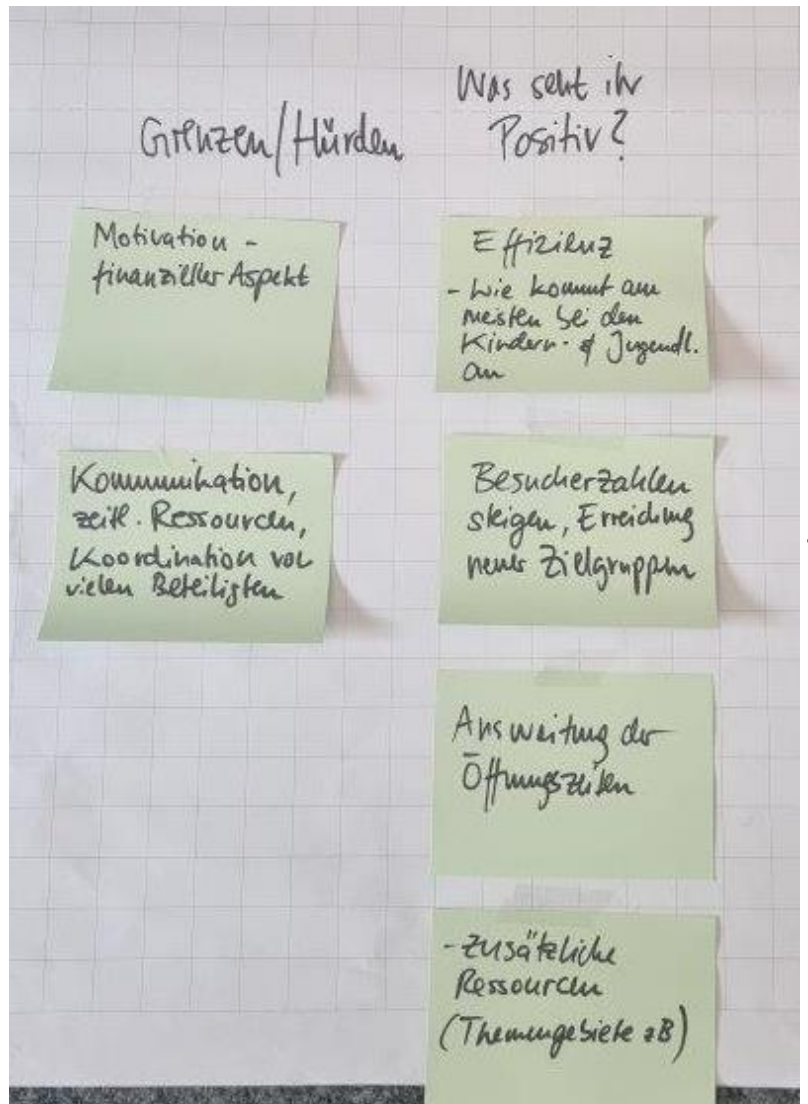 Grenzen/Hürden
Motivation -
finanzieller Aspekt
Kommunikation,
zeitl. Ressourcen,
Koordination von
vielen Beteiligten
Was seht ihr
Positiv?
Effizienz
- Wie kommt am
meisten bei den
Kindern- & Jugendl.
an
Besucherzahlen
steigen, Erreichung
neuer Zielgruppen
Ausweitung der
Öffnungszeiten
- Zusätzliche
Ressourcen
(Themengebiete zB)